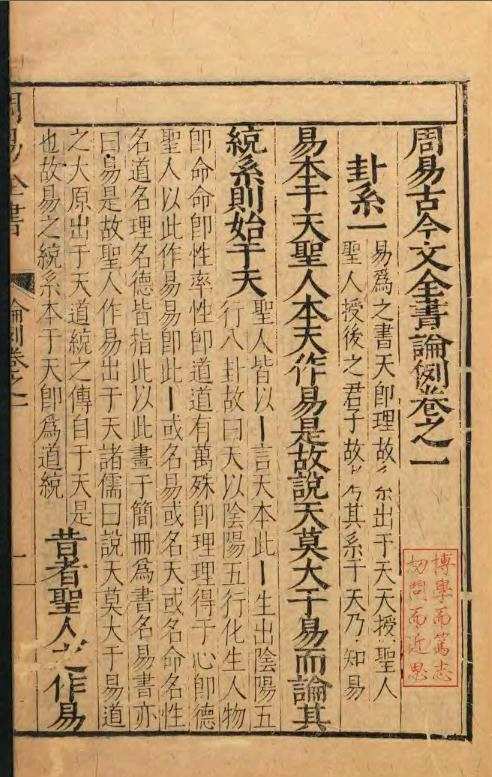 周易古今文全書論例卷之一
卦系一
易爲之書天卽理故出于天天授聖人
聖人授後之君子故其系于天乃知易
博學而篤志
切問而近思
易本于天聖人本天作易是故說天莫大于易而論其
統系則始于天
聖人皆以丨言天本此丨生出陰陽五
行八卦故曰天以陰陽五行化生人物
卽命命卽性率性卽道道有萬殊卽理理得于心卽德
聖人以此作易易卽此丨或名易或名天或名命名性
名道名理名德皆指此以此畫于簡冊爲書名易書亦
曰易是故聖人作易出于天諸儒曰說天莫大于易道
之大原出于天道統之傳自于天是
也故易之統系本于天卽爲道統
昔者聖人之作易
周易全書
論例卷之一
一